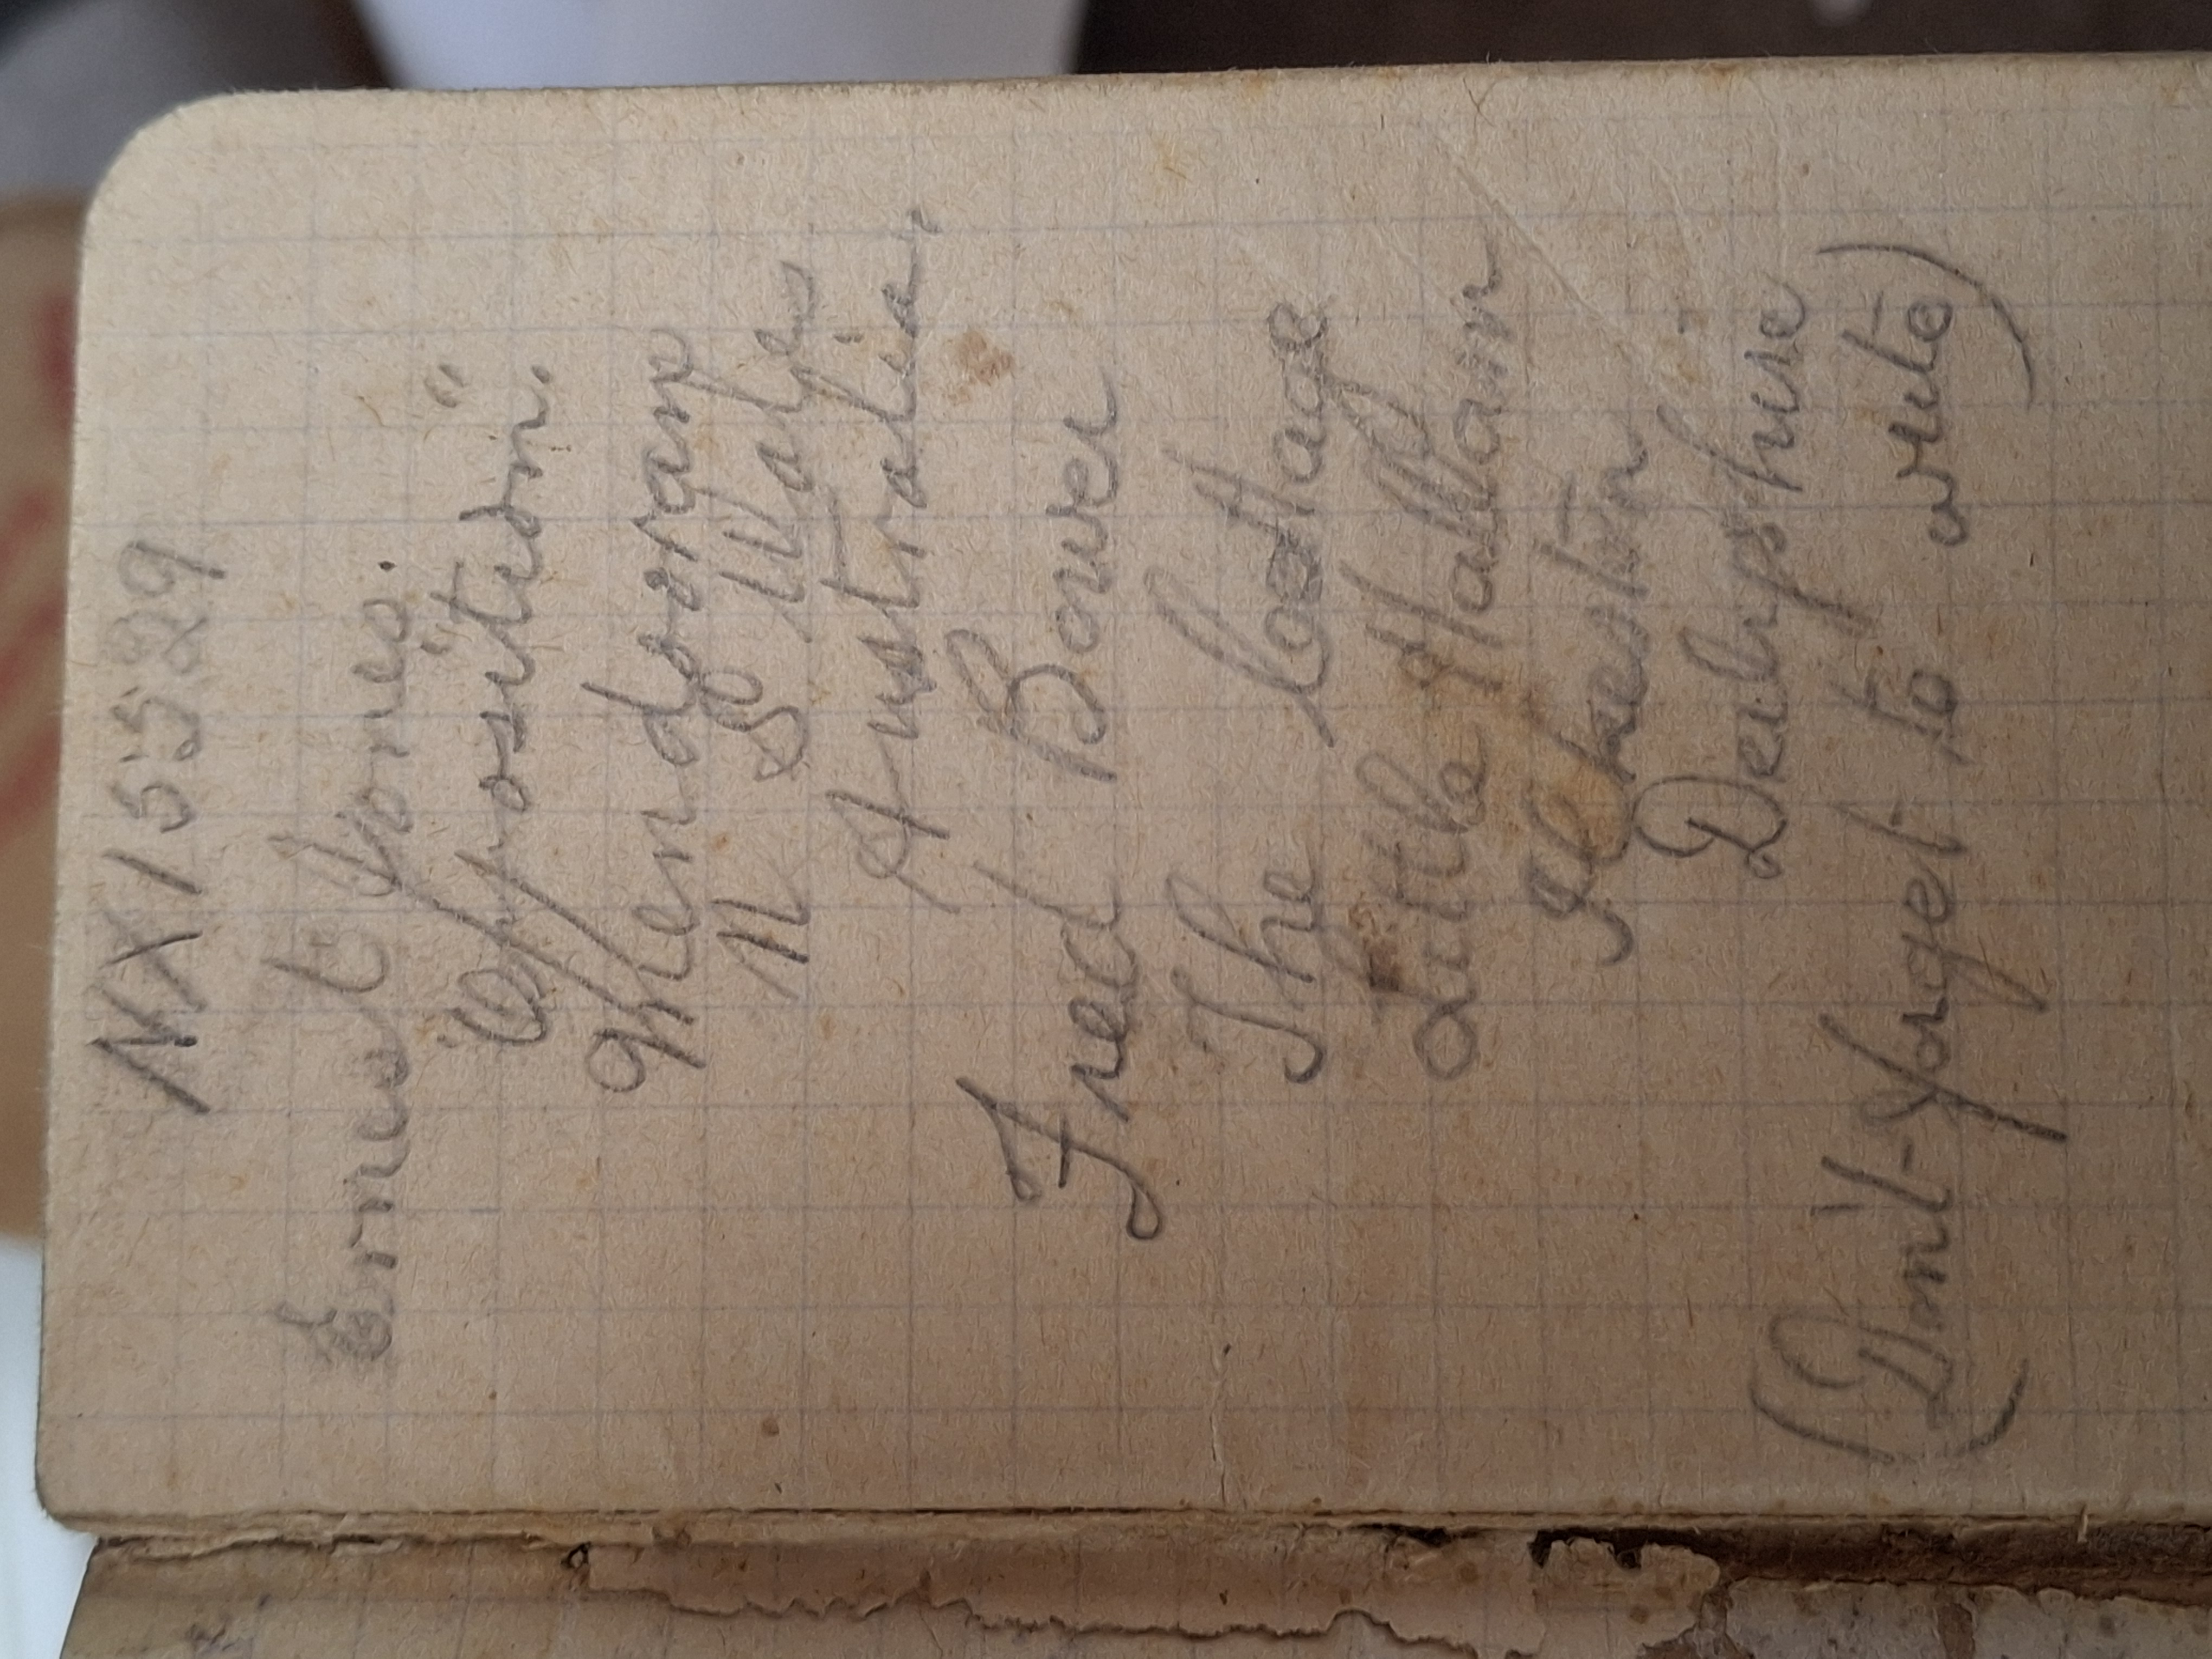 NX15529
Ernest Jones.
"Offosited".
Mendooran
N S Wales
Australia,
Fred Bower
The Cottage
Little Hallam
Ilkeston
Derbyshire
(Dont forget to write)